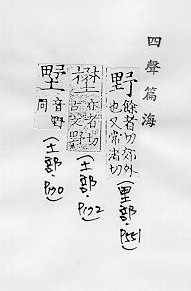 四聲篇海
野
餘者切郊外
也又常者切
(里部·P551)
壄
亦者切
古文野
(土部·P172)
墅
音野
同
(土部·P170)